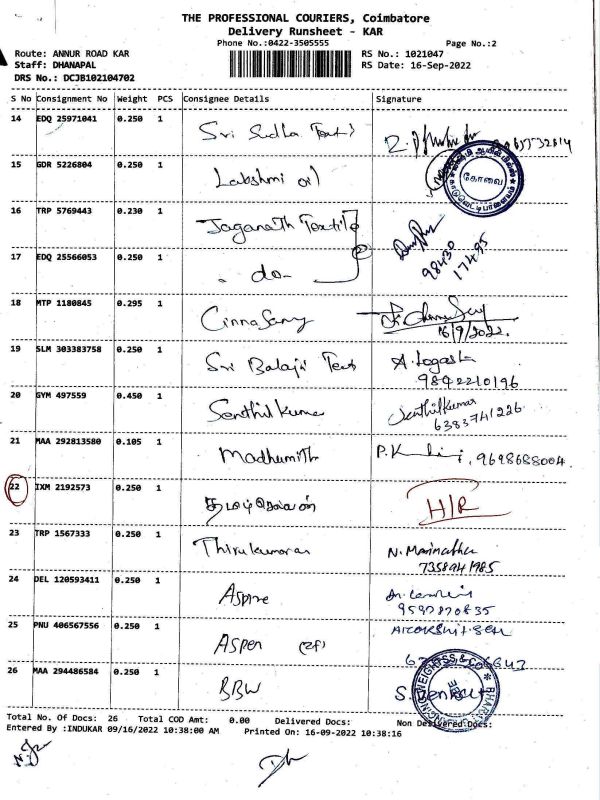 THE PROFESSIONAL COURIERS, Coimbatore
Delivery Runsheet - KAR
Phone No.:0422-3505555
Page No.:2
Route: ANNUR ROAD KAR
RS No.: 1021047
Staff: DHANAPAL
RS Date: 16-Sep-2022
DRS No.: DCJB102104702
S No Consignment No Weight PCS Consignee Details Signature
14 EDQ 25971041 0.250 1 Sri Sudha
15 GDR 5226804 0.250 1 Lakshmi oil
கோவை
16 TRP 5769443 0.230 1 Jaganath Textile
98430
17495
17 EDQ 25566053 0.250 1 - do -
18 MTP 1180845 0.295 1 Cinnasamy
16/9/2022.
19 SLM 303383758 0.250 1 Sri Balaji Tex A. Logash
9842210196
20 GYM 497559 0.450 1 Senthil Kumar Senthilkumar
6383741226
21 MAA 292813580 0.105 1 Madhumith 9698688004
22 IXM 2192573 0.250 1 H/R
23 TRP 1567333 0.250 1 Thirukumaran N.
7358941985
24 DEL 120593411 0.250 1 Aspire
9597870835
25 PNU 406567556 0.250 1 Aspen (2f)
26 MAA 294486584 0.250 1 BBW S. Venkat
Total No. Of Docs: 26 Total COD Amt: 0.00 Delivered Docs: Non Delivered Docs:
Entered By :INDUKAR 09/16/2022 10:38:00 AM Printed On: 16-09-2022 10:38:16